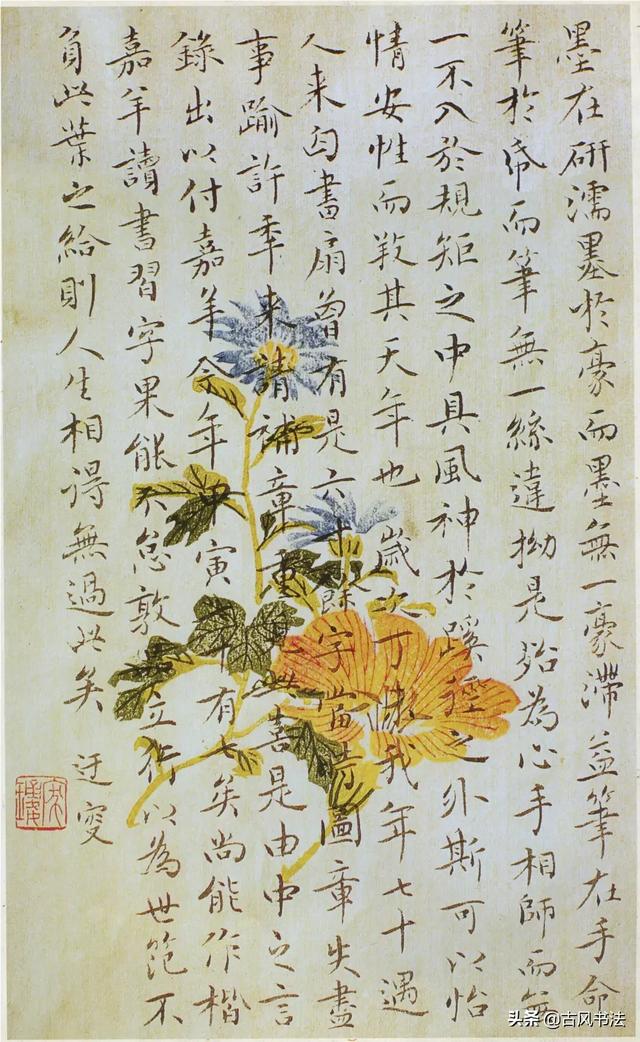 墨在研濡墨於豪而墨無一豪滯益筆在手命
筆於帋而筆無一絲違拗是殆為心手相師而無
一不入於規矩之中具風神於蹊徑之外斯可以怡
情安性而其天年也 歲次丁未我年七十遇
人来書扇曾有是六十餘字當時圖章失盡
事踰許季来請補章重見此喜是由中之言
錄出以付嘉羊今年甲寅十有七矣尚能作楷
嘉羊讀書習字果能不怠敦立行以為世範不
負此葉之給則人生相得無過此矣 迂叟
头条 @古风书法